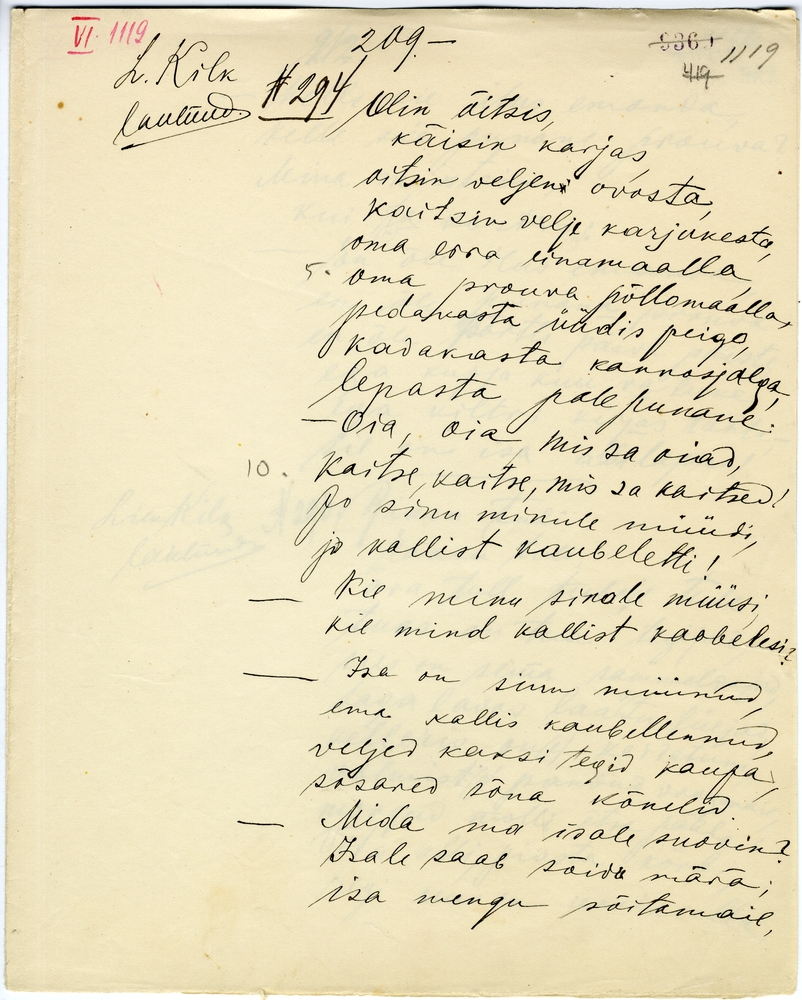 VI 1119
209.—
9360
419
1119
L. Kilk
laulnud
# 294
Olin õitsis,
käisin karjas,
oitsin veljeni ovosta,
kaitsin velje karjukesta,
oma erra einamaalla,
5. oma prouva põllomaalla,
pedakasta üüdis peigo,
kadakasta kannosjalga,
lepasta pale punane.
— Oia, oia, mis sa oiad,
10. kaitse, kaitse, mis sa kaitsed!
Jo sinu minule müüdi,
jo kallist kaubeletti!
— Kie minu sinale müüsi,
kie mind kallist kaobelesi?
— Isa on sinu müünud,
ema kallis kaubellennud,
veljed kaksi tegid kaupa,
sõsared sõna kõnelid.
— Mida ma isale suovin?
Isale saab sõidu märä;
isa mengu sõitamaie,